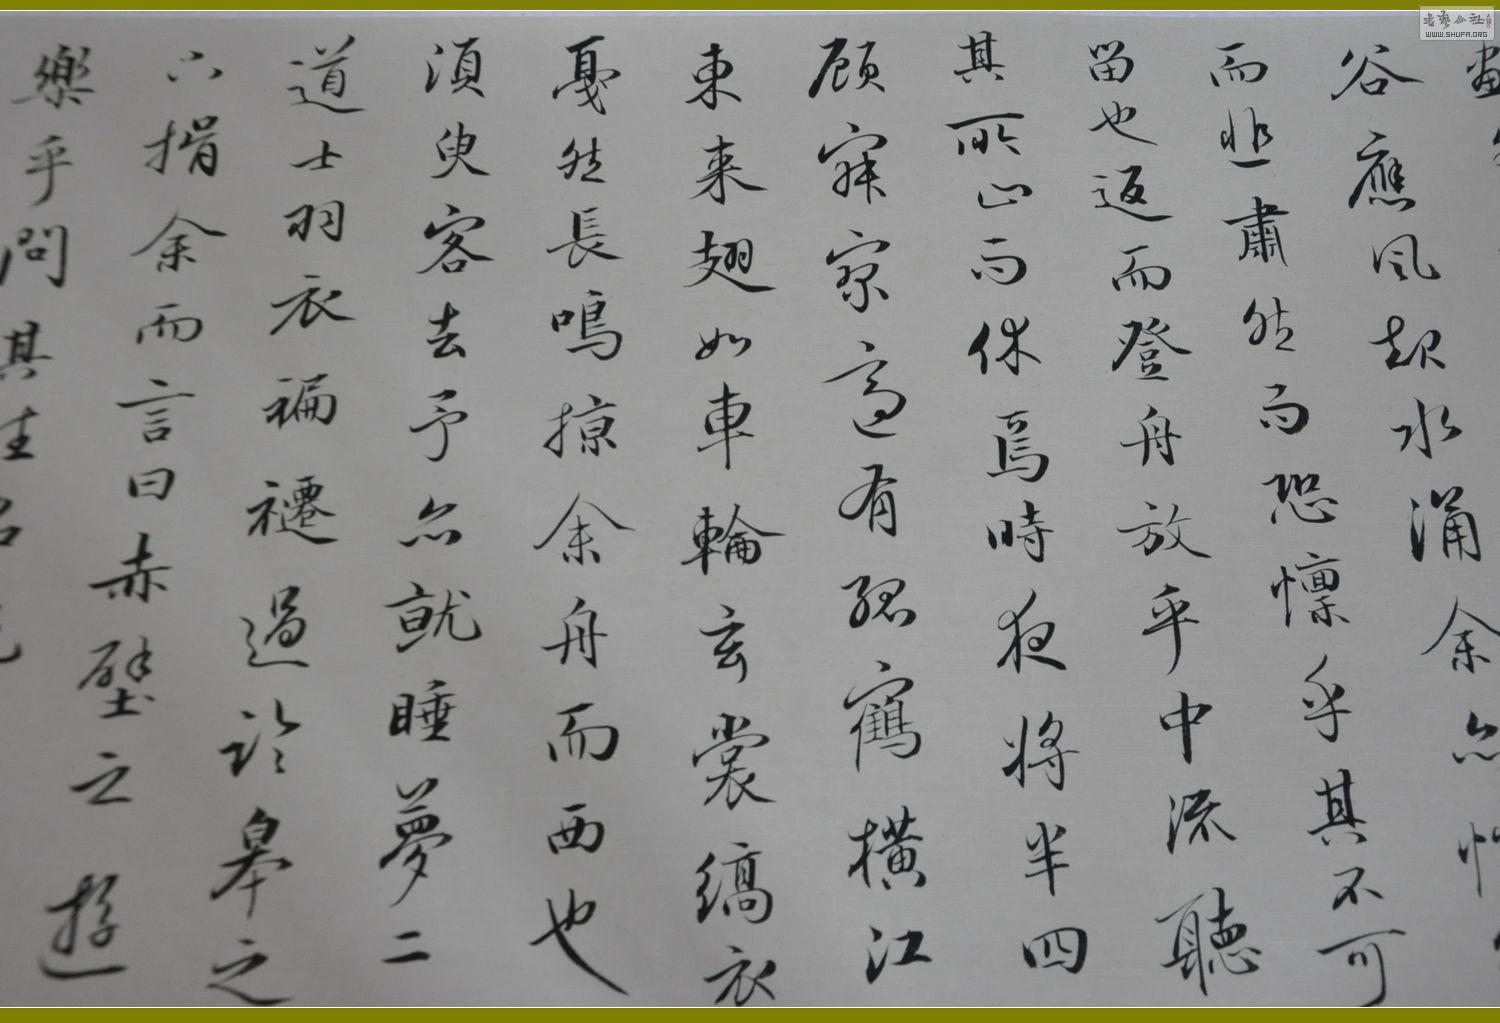 谷應風起水涌余亦悄
而悲肅然而恐懍乎其不可
留也返而登舟放乎中流聽
其所止而休焉時夜將半四
顧寂寥適有孤鶴橫江
東来翅如車輪玄裳縞衣
戛然長鳴掠余舟而西也
須臾客去予亦就睡夢二
道士羽衣褊褼過臨皋之
下揖余而言曰赤壁之遊
樂乎問其姓名
书艺公社
WWW.SHUFA.ORG